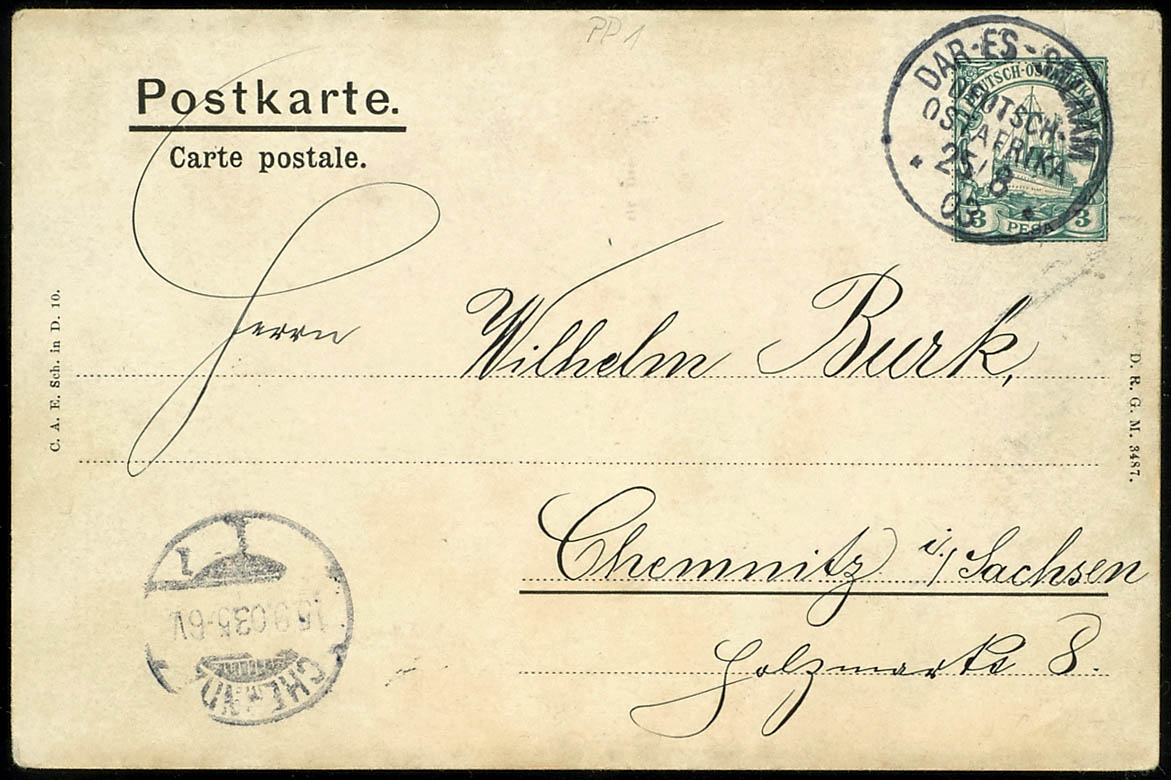 PP 1
Postkarte.
Carte postale.
DAR-ES-SALAAM
DEUTSCH-
OSTAFRIKA
25/8
03
DEUTSCH-OSTAFRIKA
3 PESA 3
Herrn Wilhelm Burk,
Chemnitz i/Sachsen
Holzmarkt 8.
C. A. E. Sch. in D. 10.
D. R. G. M. 3487.
CHEMNITZ
1